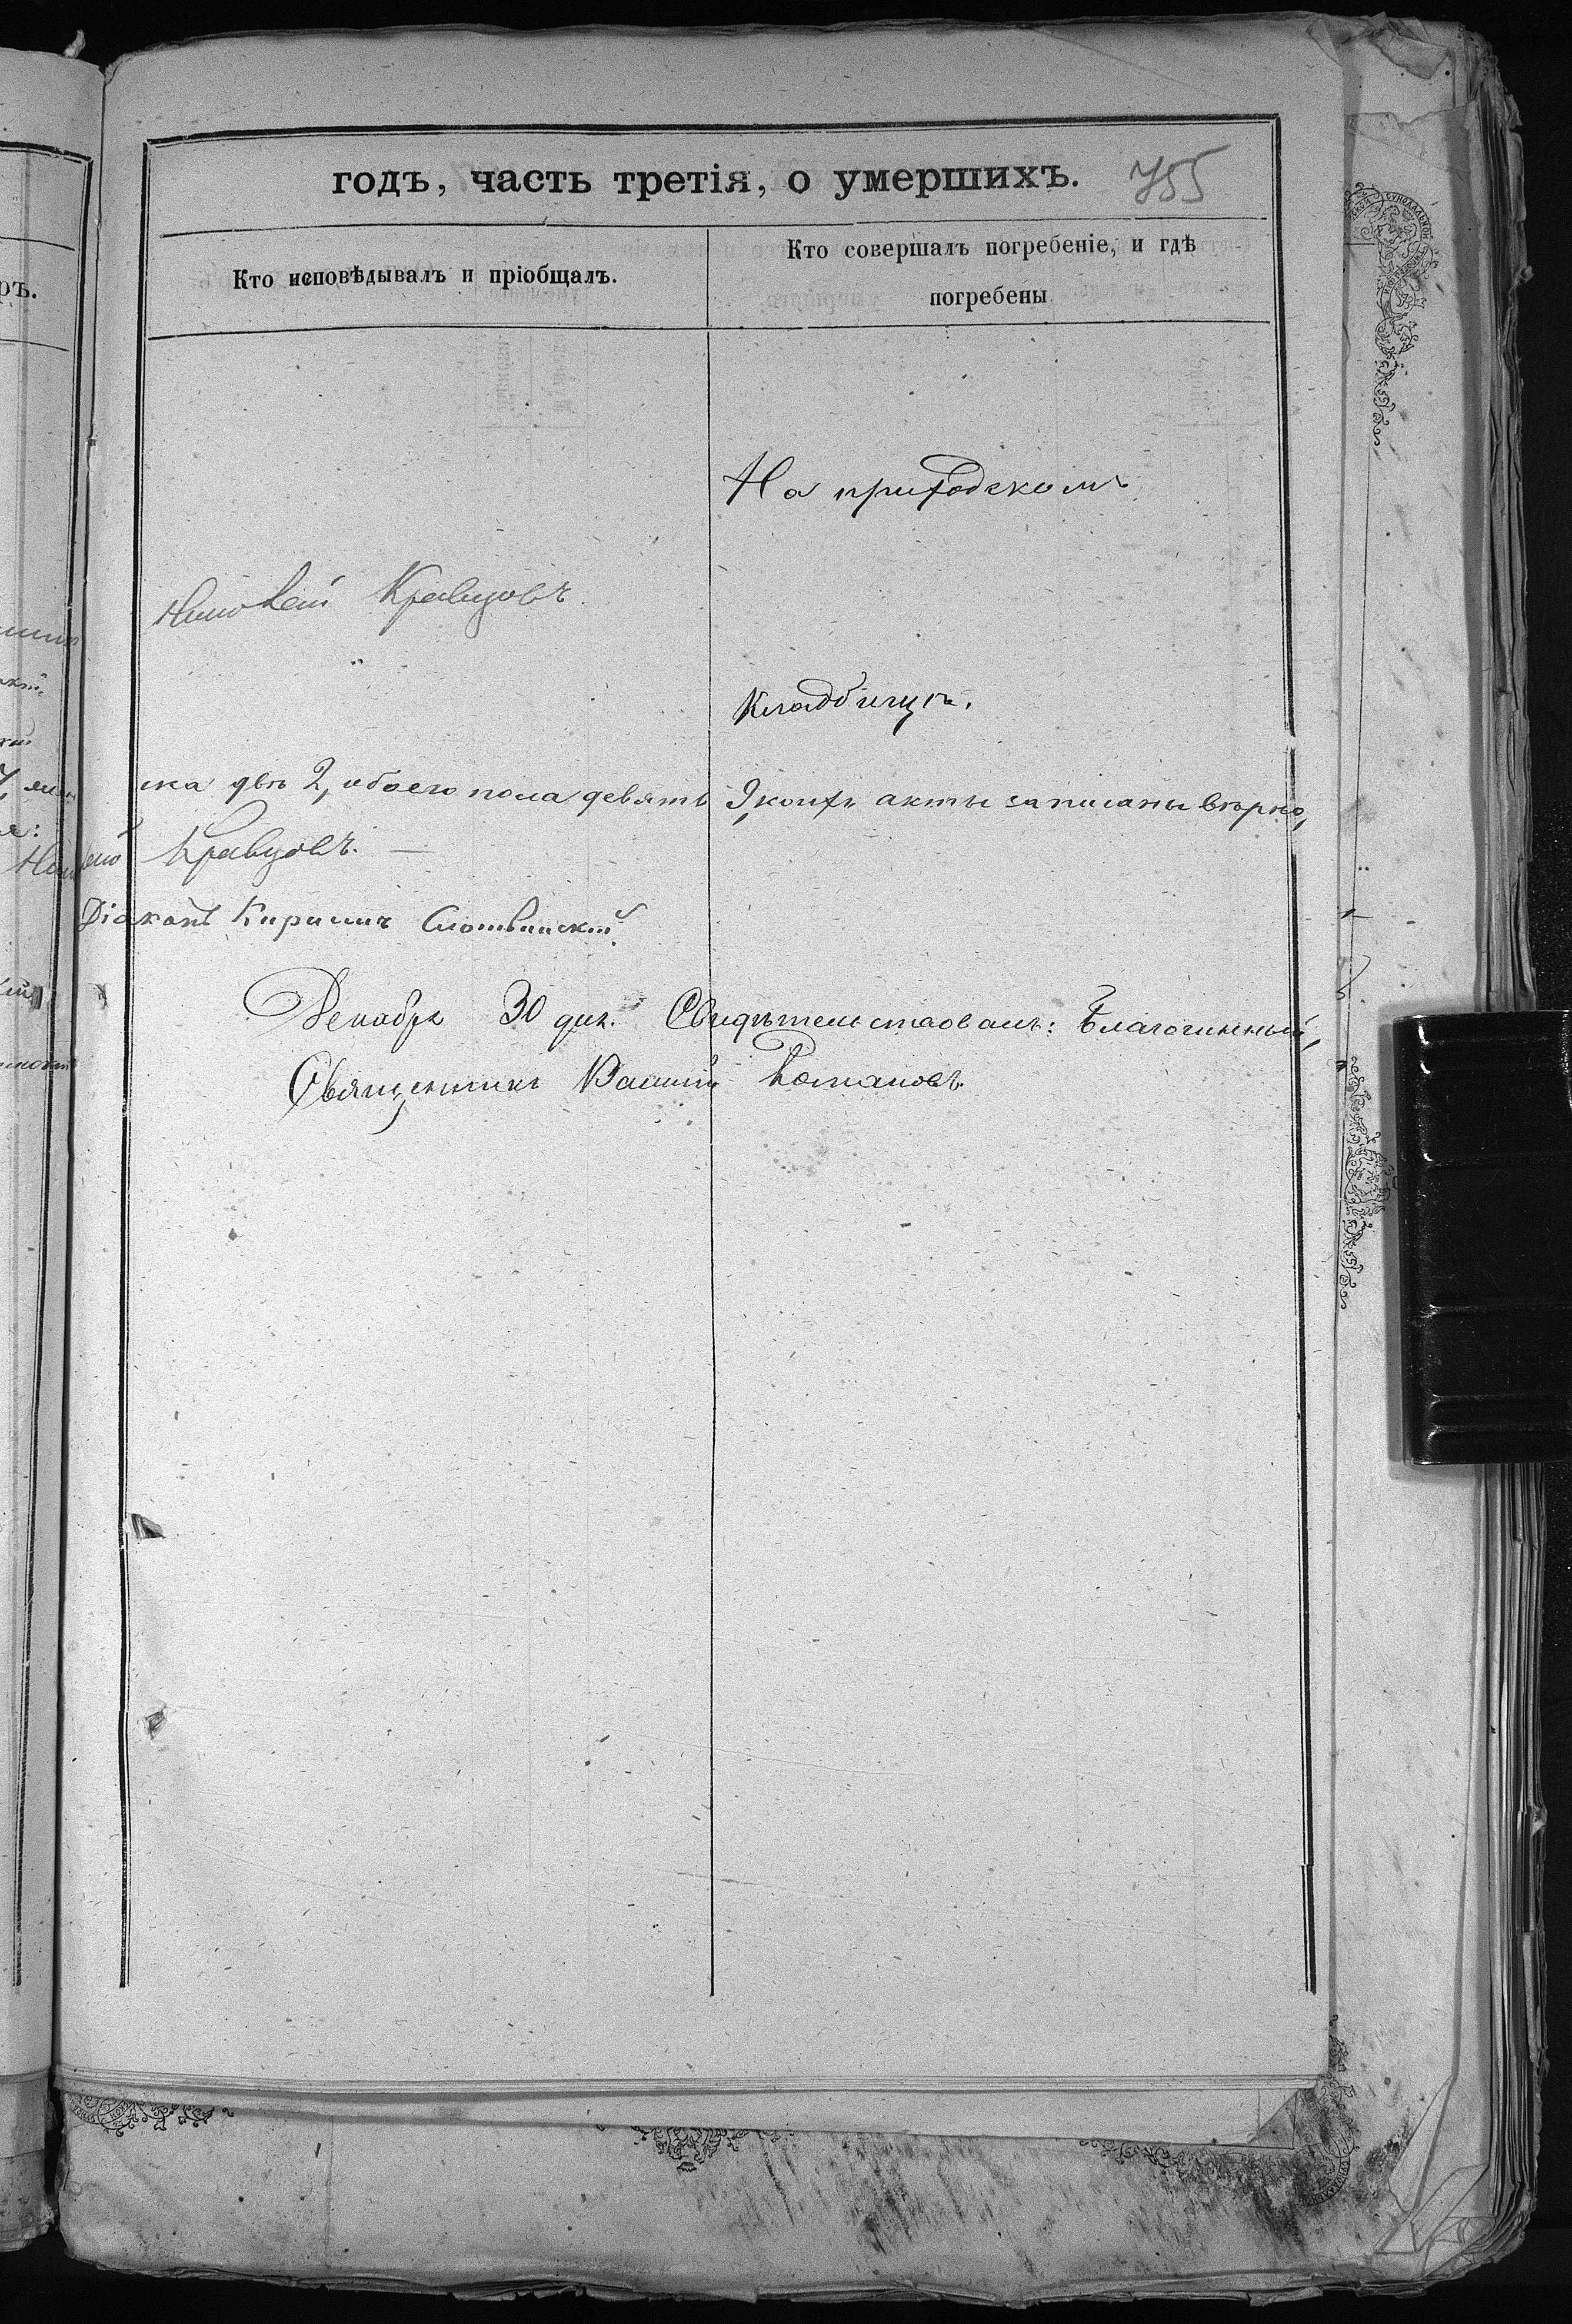 годъ, часть третія, о умершихъ. 755
Кто исповѣдывалъ и пріобщалъ.
Кто совершалъ погребеніе, и гдѣ
погребены
На приходскомъ
Николай Кравцовъ
кладбищѣ.
ска двѣ 2, обоего пола девять 9, коихъ акты записаны вѣрно,
Кравцовъ. —
Діаконъ Кириллъ Слотвинскій.
Декабря 30 дня. Свидѣтельствовалъ: Благочинный,
Священникъ Василій Романовъ.